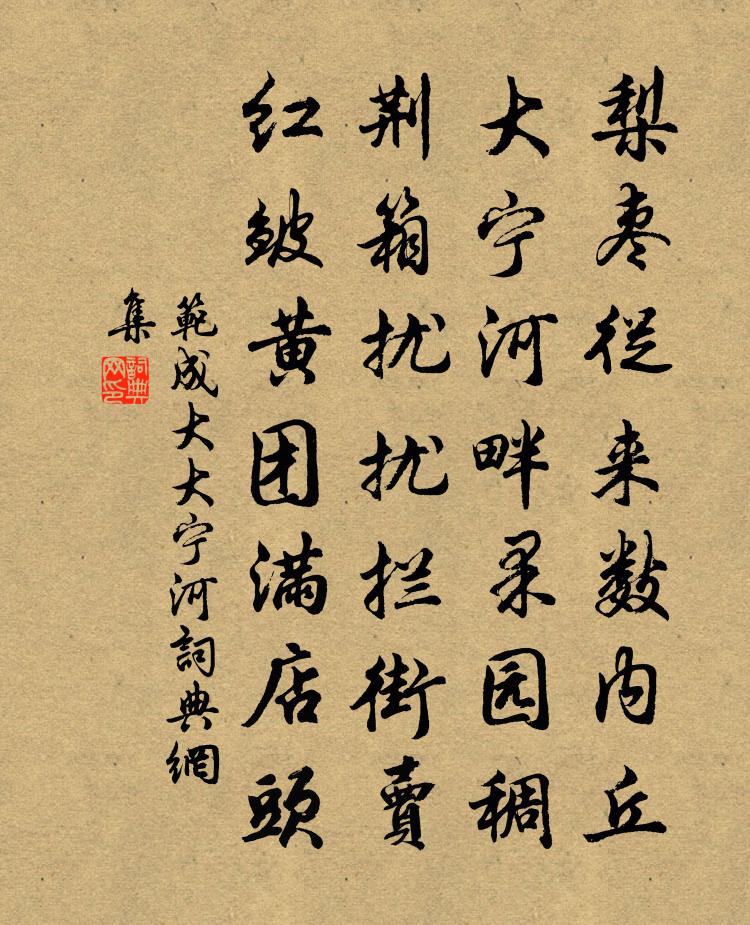 梨枣從来数内丘
大宁河畔果园稠
荆箱扰扰拦街賣
红皱黄团满店頭
範成大大宁河詞典網
集
詞典网印